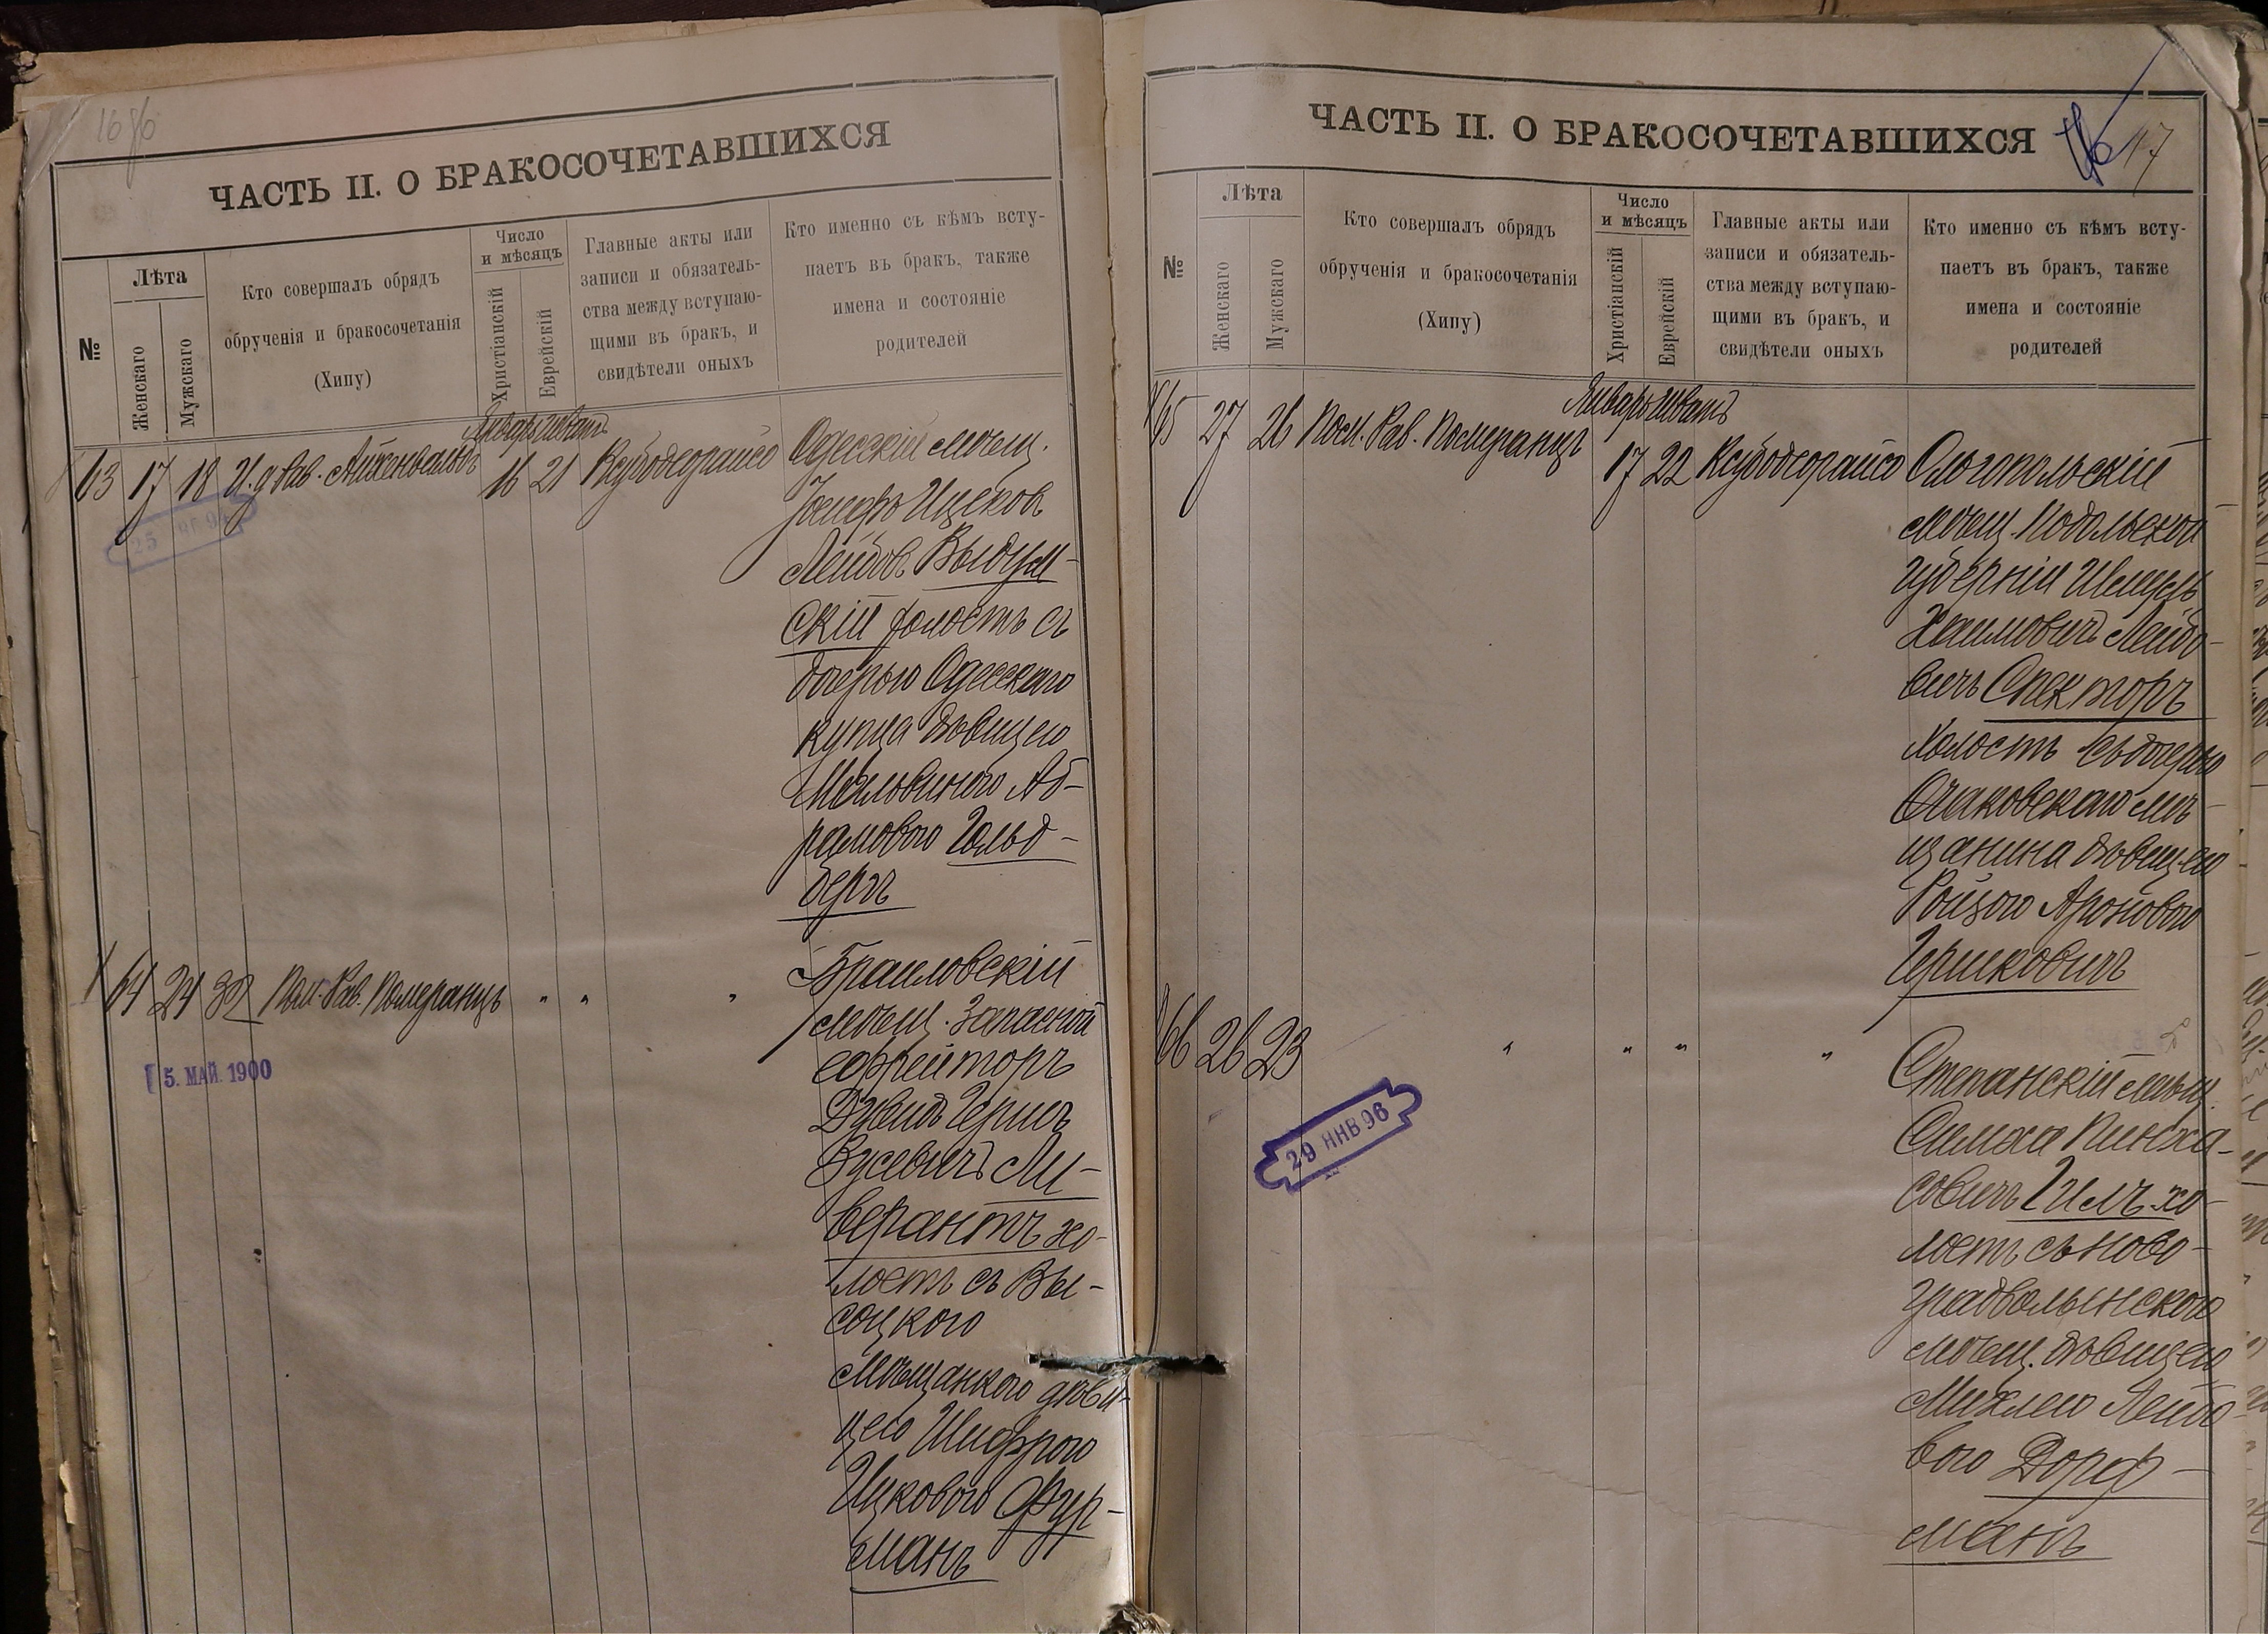 16 об
ЧАСТЬ II. О БРАКОСОЧЕТАВШИХСЯ
№
Лѣта
Женскаго
Мужскаго
Кто совершалъ обрядъ
обрученія и бракосочетанія
(Хипу)
Число
и мѣсяцъ
Христіанскій
Еврейскій
Главные акты или
записи и обязатель-
ства между вступаю-
щими въ бракъ, и
свидѣтели оныхъ
Кто именно съ кѣмъ всту-
паетъ въ бракъ, также
имена и состояніе
родителей
Январь Шватъ
63 17 18 И. д. Рав. Айхенвальдъ 16 21 Ксубодеорайсо Одесскій мѣщ.
Іосифъ Ицковъ
Лейбовъ Выдум-
скій холостъ съ
дочерью Одесскаго
купца дѣвицею
Мальвиною Аб-
рамовою Гольд-
бергъ
64 24 32 Пом. Рав. Померанцъ " " " Браиловскій
мѣщ. Запасной
ефрейторъ
Дувидъ Гершъ
Зусевичъ Ли-
верантъ хо-
лостъ съ Вы-
соцкою
мѣщанкою дѣви-
цею Шифрою
Ицковою Фур-
манъ
5. МАЙ. 1900
ЧАСТЬ II. О БРАКОСОЧЕТАВШИХСЯ
17
№
Лѣта
Женскаго
Мужскаго
Кто совершалъ обрядъ
обрученія и бракосочетанія
(Хипу)
Число
и мѣсяцъ
Христіанскій
Еврейскій
Главные акты или
записи и обязатель-
ства между вступаю-
щими въ бракъ, и
свидѣтели оныхъ
Кто именно съ кѣмъ всту-
паетъ въ бракъ, также
имена и состояніе
родителей
Январь Шватъ
65 27 26 Пом. Рав. Померанцъ 17 22 Ксубодеорайсо Ольгопольскій
мѣщ. Подольской
губерніи Шмуль
Хаимовичъ Лейбо-
вичъ Спекторъ
холостъ съ дочерью
Очаковскаго мѣ-
щанина дѣвицею
Ройзою Ароновою
Гершковичъ
66 26 23 " " " " Степанскій мѣщ.
Симха Пинха-
совичъ Гилъ хо-
лостъ съ ново-
градволынскою
мѣщ. дѣвицею
Михлею Лейбо-
вою Дорф-
манъ
29 ЯНВ 96